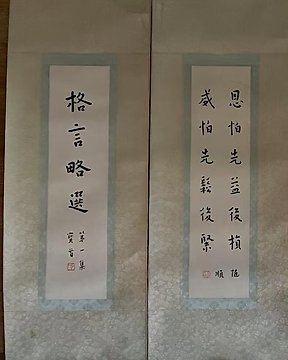 格言略選
第一集
恩怕先益後損
威怕先鬆後緊
順